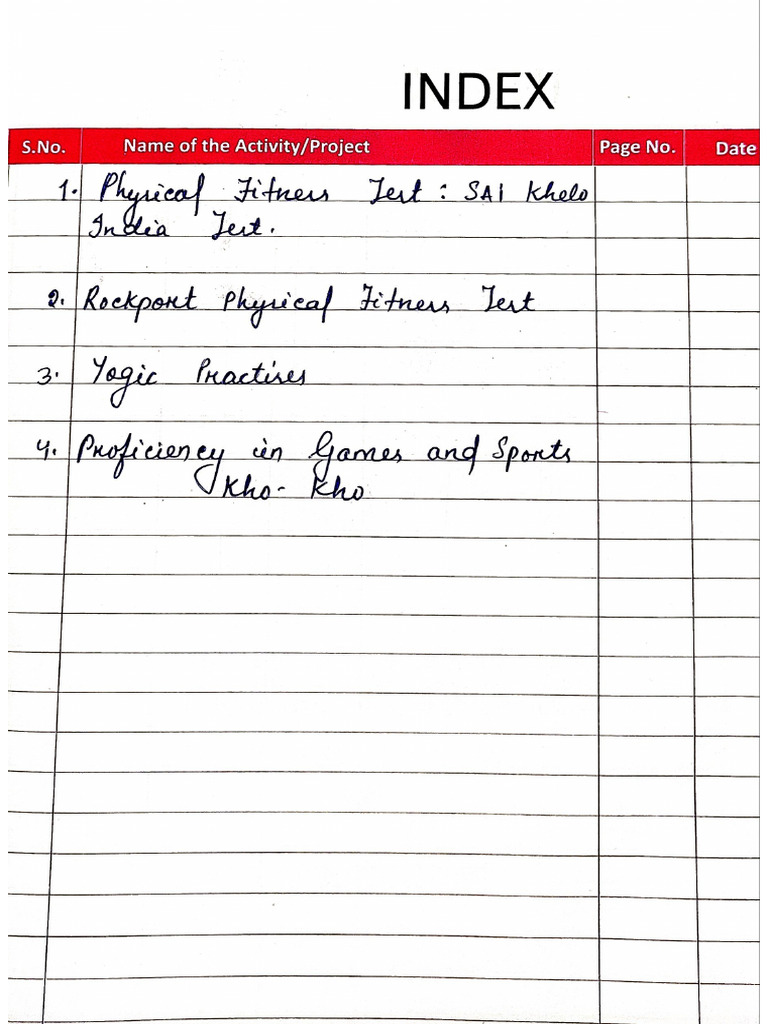 INDEX
S.No. Name of the Activity/Project Page No. Date
1. Physical Fitness Test : SAI Khelo
India Test.
2. Rockport Physical Fitness Test
3. Yogic Practises
4. Proficiency in Games and Sports
Kho- Kho